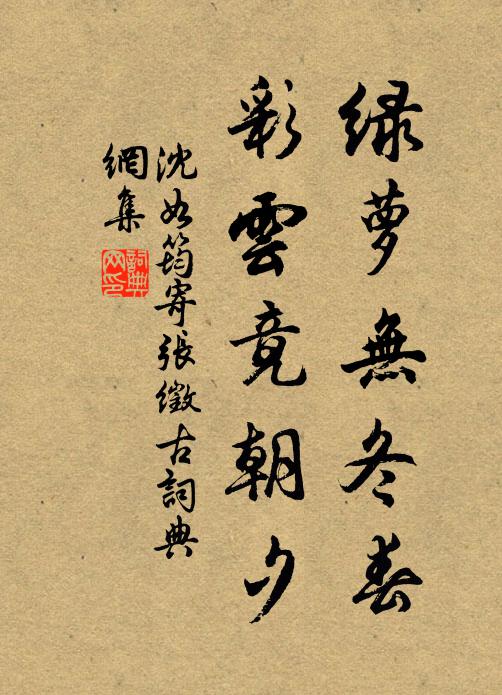 緑萝無冬春
彩雲竟朝夕
沈如筠寄張徵古詞典
網集
詞典
网印